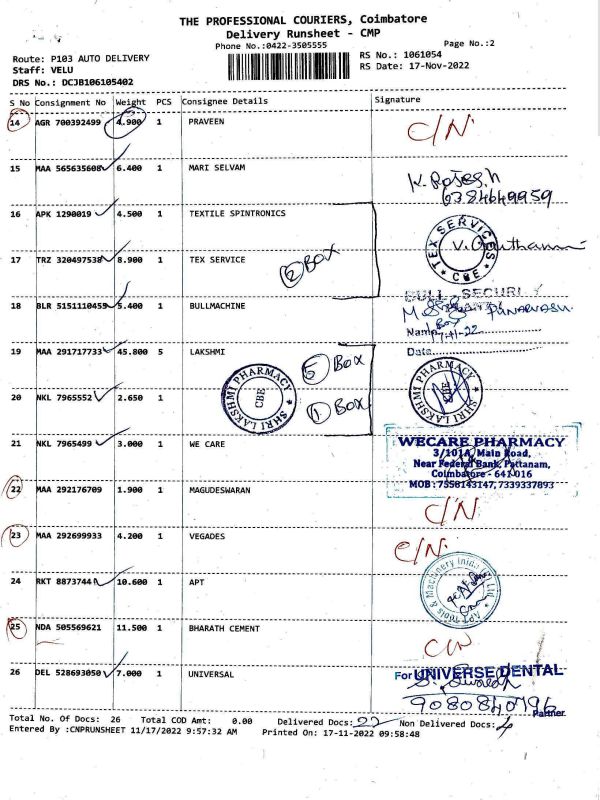 THE PROFESSIONAL COURIERS, Coimbatore
Delivery Runsheet - CMP
Phone No.:0422-3505555
Page No.:2
Route: P103 AUTO DELIVERY
RS No.: 1061054
Staff: VELU
RS Date: 17-Nov-2022
DRS No.: DCJB106105402
S No Consignment No Weight PCS Consignee Details Signature
14 AGR 700392499 4.900 1 PRAVEEN C/N
15 MAA 565635608 6.400 1 MARI SELVAM
16 APK 1290019 4.500 1 TEXTILE SPINTRONICS
TEX SERVICES
CBE
17 TRZ 320497538 8.900 1 TEX SERVICE
2 BOX
18 BLR 5151110455 5.400 1 BULLMACHINE
Date
19 MAA 291717733 45.800 5 LAKSHMI
5 BOX
SHRI LAKSHMI PHARMACY
CBE
SHRI LAKSHMI PHARMACY
20 NKL 7965552 2.650 1
1 BOX
21 NKL 7965499 3.000 1 WE CARE
WECARE PHARMACY
3/101A, Main Road,
Near Federal Bank, Pattanam,
Coimbatore - 641 016
MOB : 7558143147, 7339337893
22 MAA 292176709 1.900 1 MAGUDESWARAN C/N
23 MAA 292699933 4.200 1 VEGADES C/N
24 RKT 8873744 10.600 1 APT
25 NDA 505569621 11.500 1 BHARATH CEMENT C/N
26 DEL 528693050 7.000 1 UNIVERSAL
For UNIVERSE DENTAL
9080840796
Partner
Total No. Of Docs: 26 Total COD Amt: 0.00 Delivered Docs: 22 Non Delivered Docs: 4
Entered By :CNPRUNSHEET 11/17/2022 9:57:32 AM Printed On: 17-11-2022 09:58:48